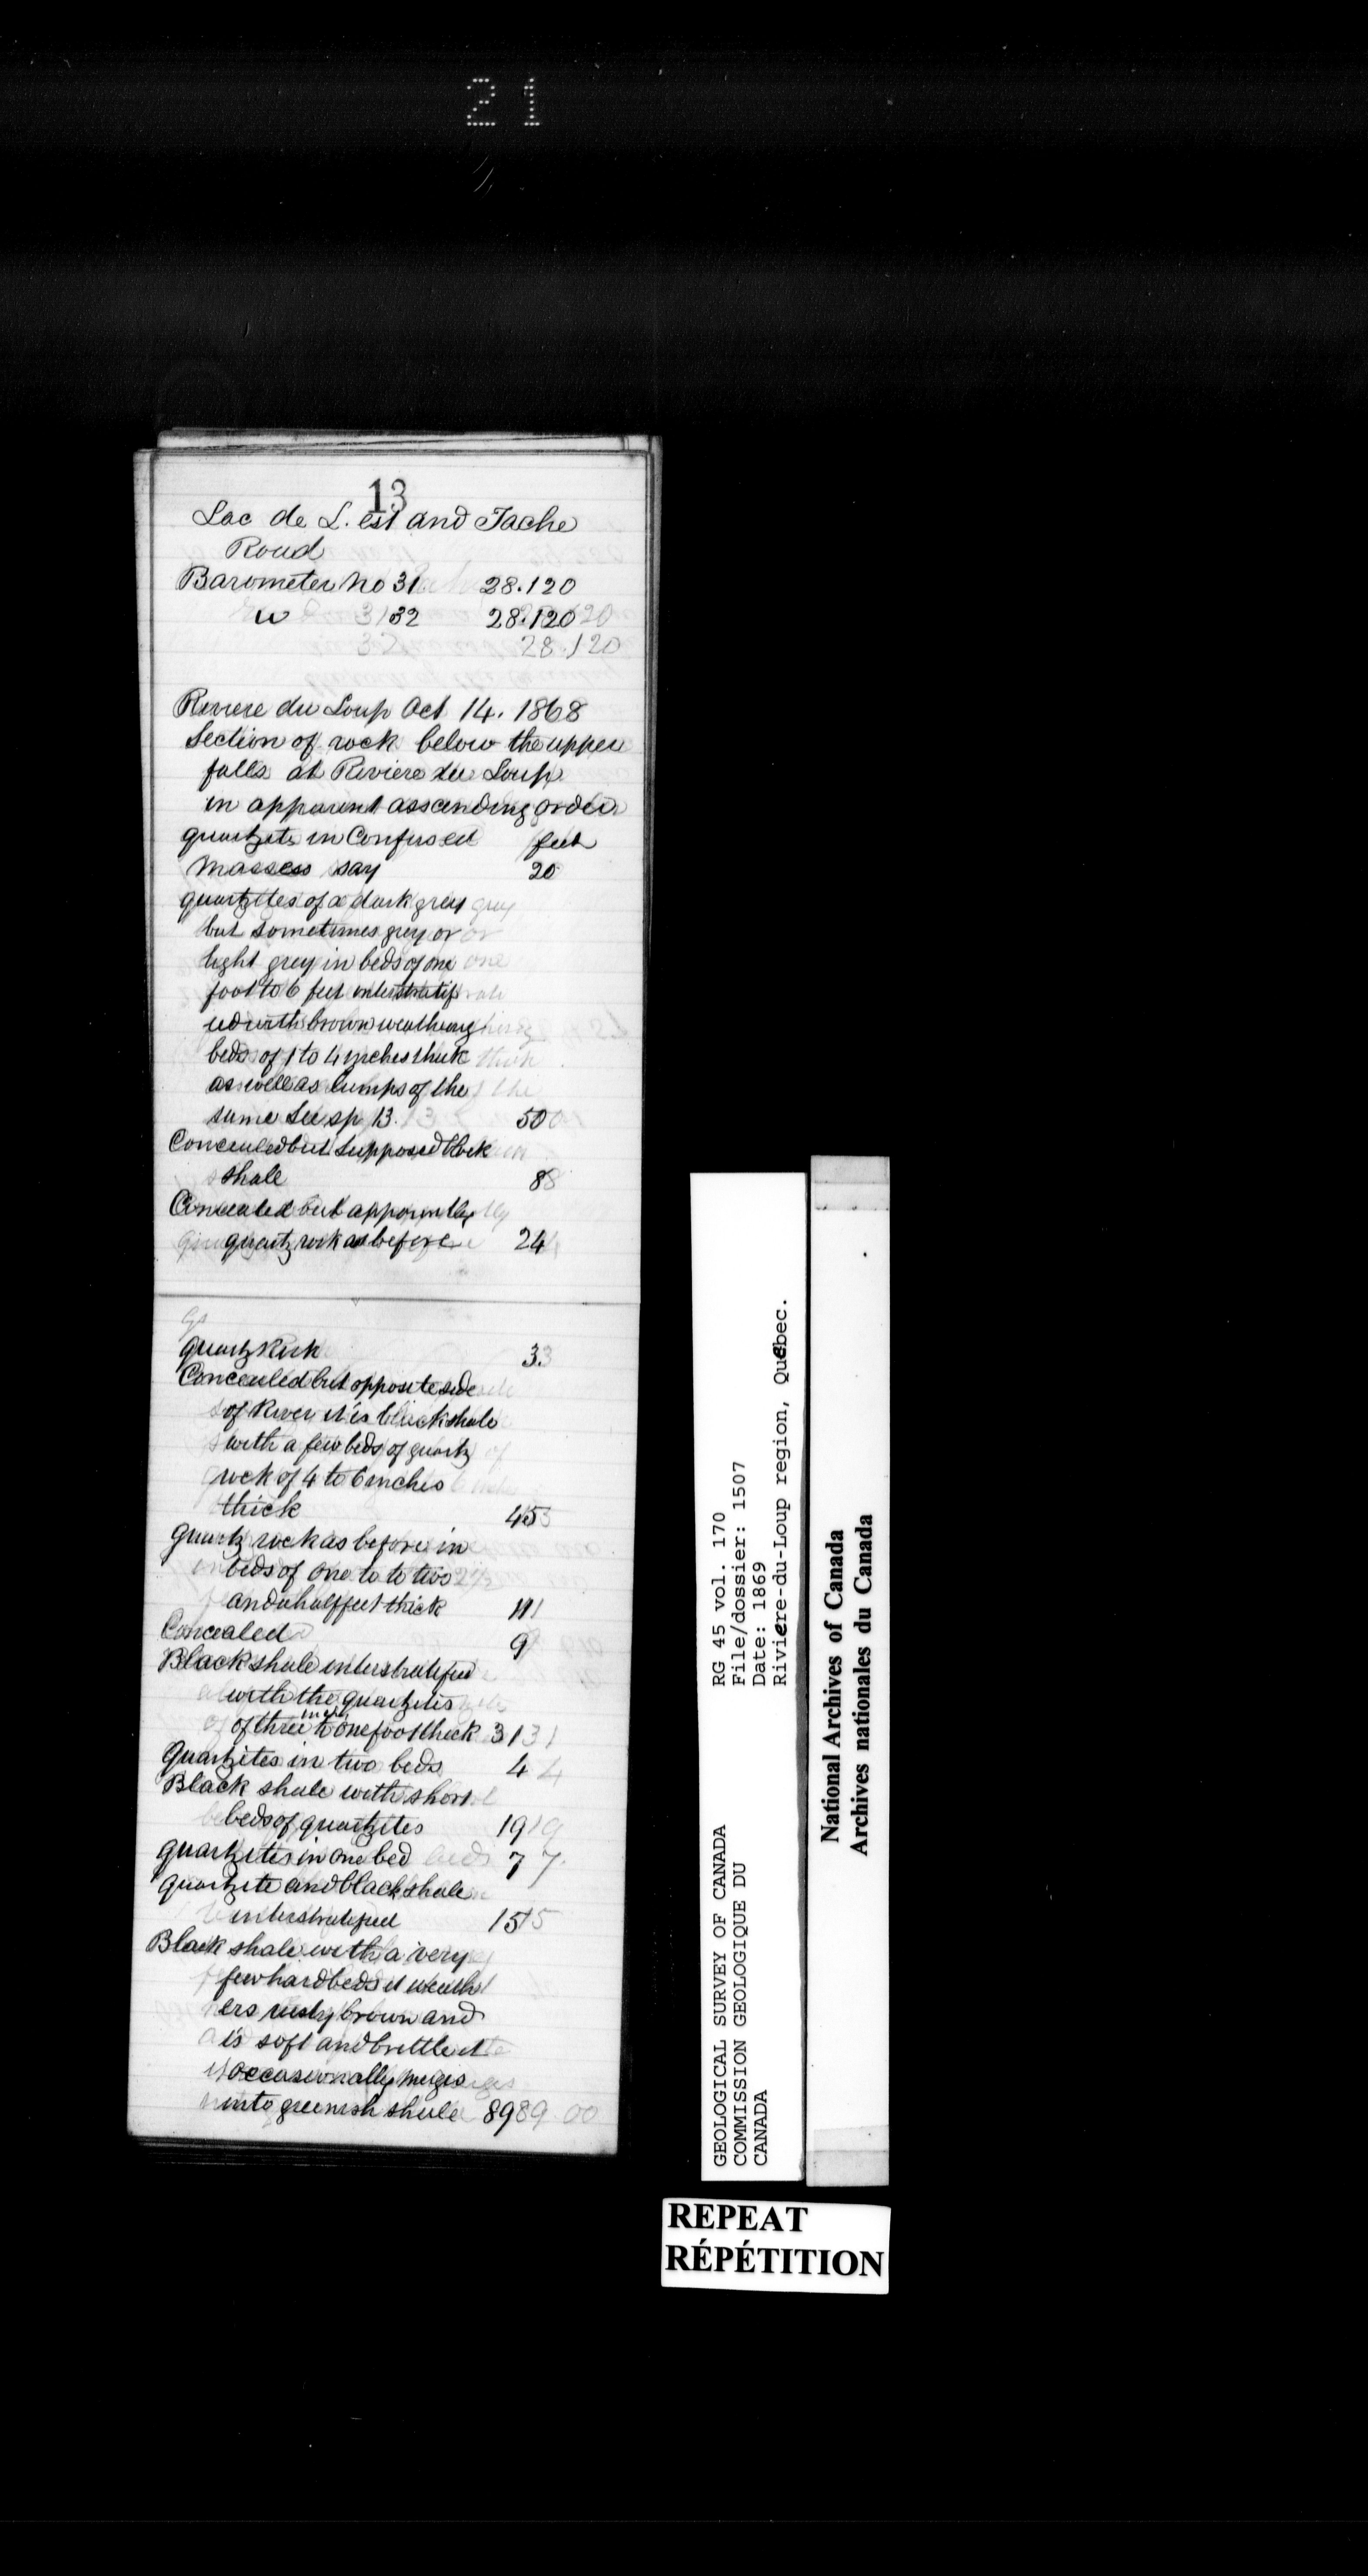 21
13
Lac de L. est and Tache
Road
Barometer No 31 28.120
32 28.120
32 28.120
Riviere du Loup Oct 14. 1868
Section of rock below the upper
falls at Riviere du Loup
in apparent asscending order
quartzite in Confused feet
Massess say 20
quartzites of a dark grey
but sometimes grey or
light grey in beds of one
foot to 6 feet interstratifi
ed with brown weathering
beds of 1 to 4 inches thick
as well as lumps of the
same See sp 13. 50
Concealed but supposed black
shale 8
Concealed but apparently
quartz rock as before 24
quartz Rock 3
Concealed but opposite side
of River it is black shale
with a few beds of quartz
rock of 4 to 6 inches
thick 45
quartz rock as before in
beds of one to to two
and a half feet thick 11
Concealed 9
Black shale interstratified
with the quartzites
of three inches to one foot thick 31
quartzites in two beds 4
Black shale with short
beds of quartzites 19
quartzites in one bed 7
quartzite and black shale
interstratified 15
Black shale with a very
few hard beds it weath
ers rusty brown and
is soft and brittle it
occasionally merges
into greenish shale 89
GEOLOGICAL SURVEY OF CANADA
COMMISSION GEOLOGIQUE DU
CANADA
RG 45 vol. 170
File/dossier: 1507
Date: 1869
Riviere-du-Loup region, Quebec.
National Archives of Canada
Archives nationales du Canada
REPEAT
RÉPÉTITION